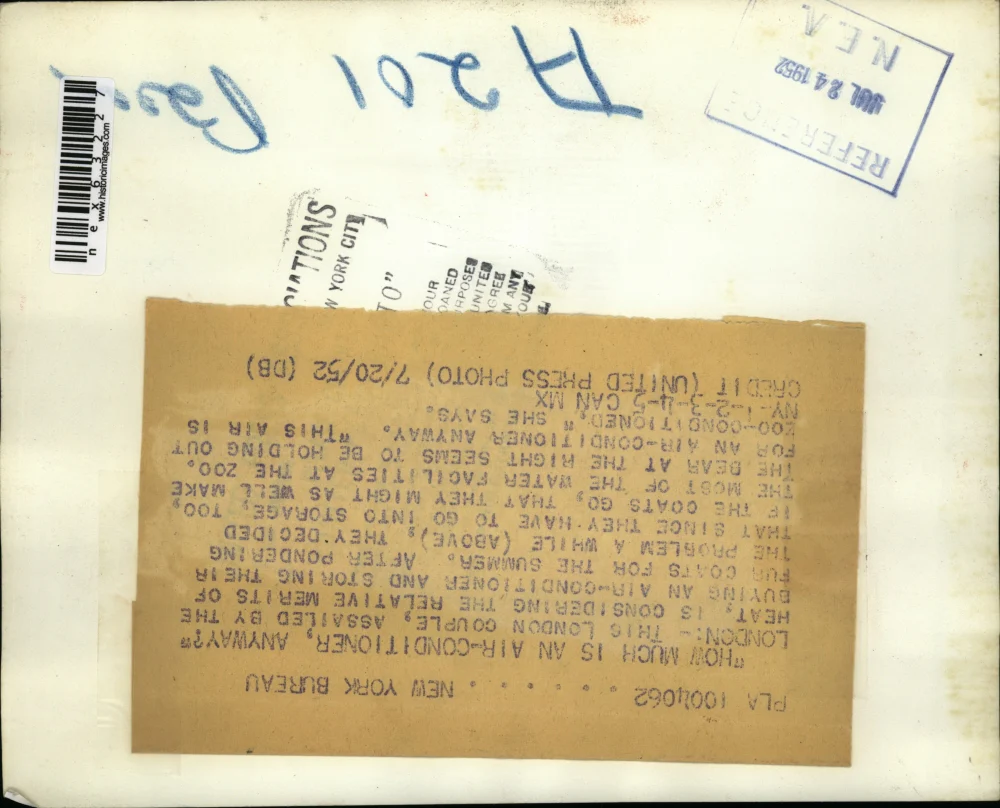 PLA 1004062 . . . . . . . NEW YORK BUREAU
"HOW MUCH IS AN AIR-CONDITIONER, ANYWAY?"
LONDON:- THIS LONDON COUPLE, ASSAILED BY THE
HEAT, IS CONSIDERING THE RELATIVE MERITS OF
BUYING AN AIR-CONDITIONER AND STORING THEIR
FUR COATS FOR THE SUMMER. AFTER PONDERING
THE PROBLEM A WHILE (ABOVE), THEY DECIDED
THAT SINCE THEY HAVE TO GO INTO STORAGE, TOO,
IF THE COATS GO, THAT THEY MIGHT AS WELL MAKE
THE MOST OF THE WATER FACILITIES AT THE ZOO.
THE BEAR AT THE RIGHT SEEMS TO BE HOLDING OUT
FOR AN AIR-CONDITIONER ANYWAY. "THIS AIR IS
ZOO-CONDITIONED," SHE SAYS.
NY-1-2-3-4-5 CAN MX
CREDIT (UNITED PRESS PHOTO) 7/20/52 (DB)
REFERENCE
JUL 24 1952
N.E.A.
A201
www.historicimages.com
nex63227
YORK CITY
UNITED